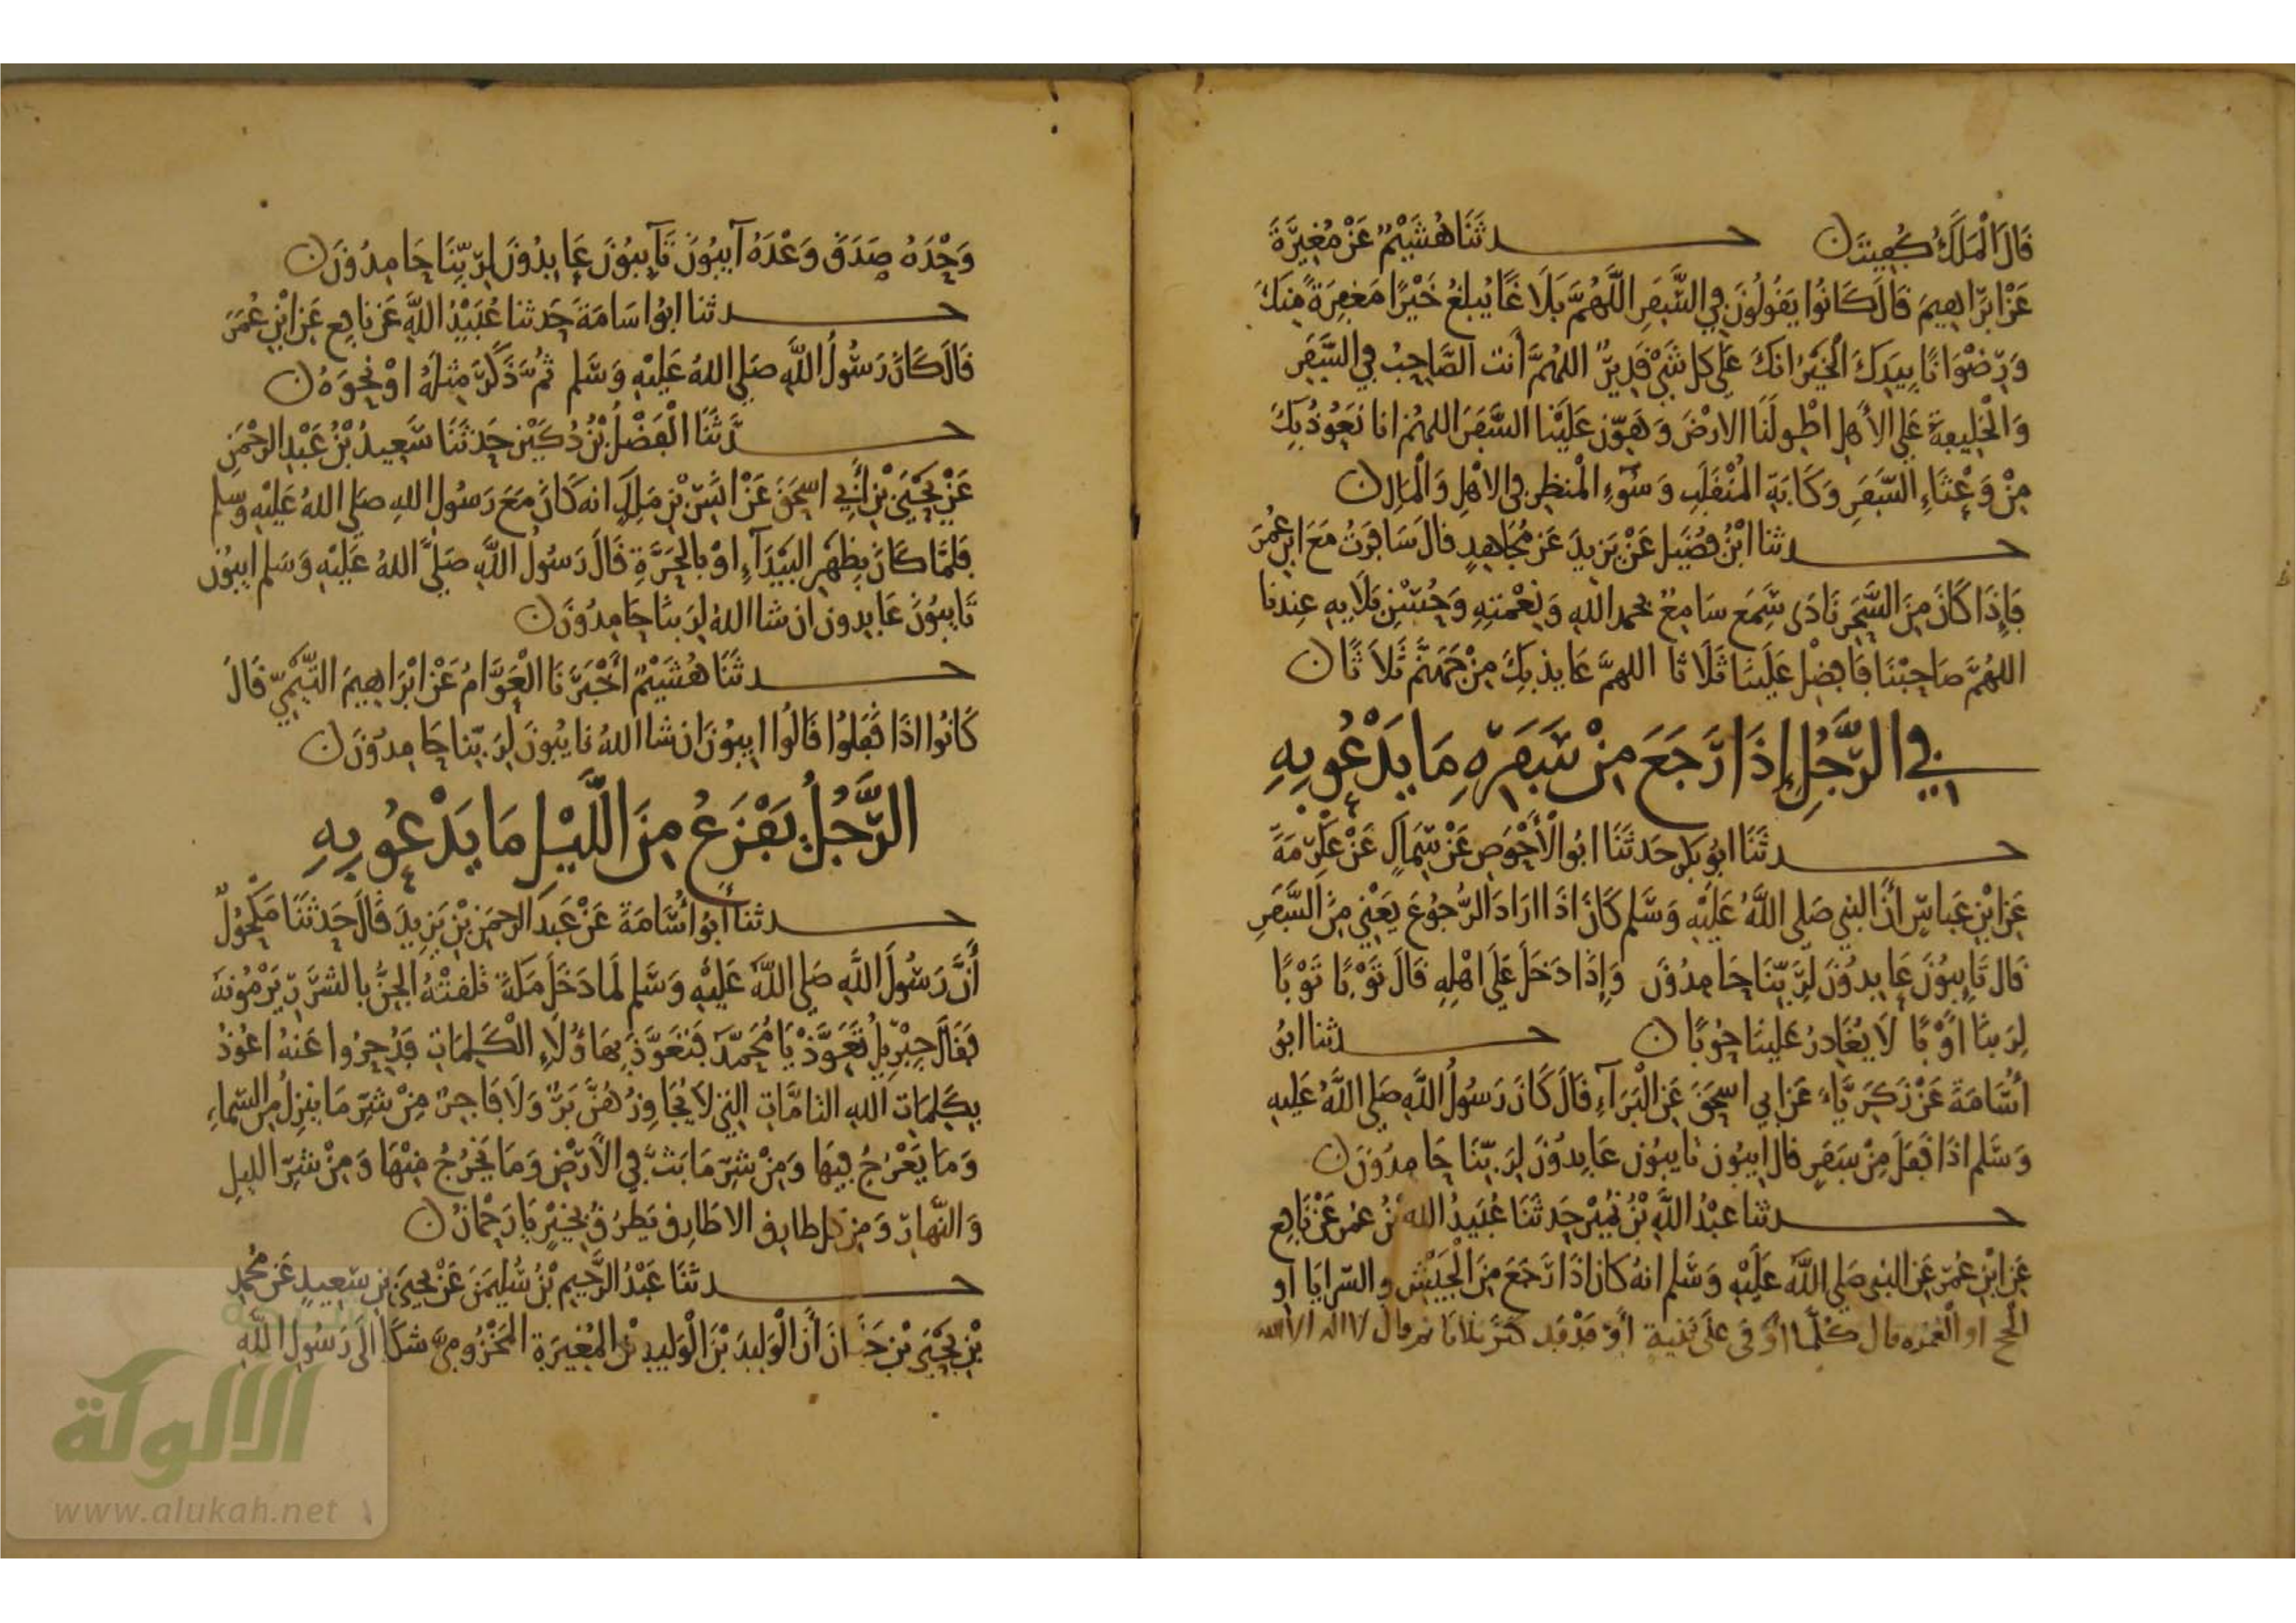 قَالَ الْمَلَكُ كُفِيتَ ن حـدثَنَا هُشَيْمٌ عَنْ مُغِيرَةَ
عَنْ ابْرَاهِيمَ قَالَ كَانُوا يَقُولُونَ فِي السَّفَرِ اللَّهُمَّ بَلَاغًا يُبلغُ خَيْرًا مَغفِرَةً مِنكَ
وَرِضْوَانًا بِيَدِكَ الْخَيْرُ انكَ عَلَى كل شَيْ قَدِيرٌ اللهُمَّ أَنت الصَّاحِبُ فِي السَّفَرِ
وَالْخَلِيفةُ عَلى الأهلِ اطْوِ لَنَا الارْضَ وَهَوِّن عَلَيْنَا السَّفَرَ اللهُم انا نَعُوْذُ بِكَ
مِنْ وَعْثَاءِ السَّفَرِ وَكَابَةِ الْمُنْقَلَبِ وَسُوءِ الْمنظَرِ فِى الاهْلِ وَالْمَالِ ن
حـدثنا ابْنُ فُضَيلٍ عَنْ يَزِيدَ عَنْ مُجَاهِدٍ قالَ سَافَرتُ مَعَ ابنِ عُمَرَ
فَإِذَا كَانَ مِنَ السَّحَرِ نَادَى سَمِعَ سَامِعٌ بحمدِ اللهِ وَنِعْمَتِهِ وَحُسْنِ بَلَايهِ عِندنا
اللهُمَّ صَاحِبْنَا فَافضِلْ عَلَيْنَا ثَلَاثًا اللهمَّ عَايذ بِكَ مِنْ جَهَنَّمَ ثَلاَثًا ن
فِي الرَّجُلِ إِذَا رَجَعَ مِنْ سَفَرِهِ مَا يَدْعُو بِهِ
حـدثَنَا ابُو بَكرٍ حَدثَنَا ابُو الْأَحْوَصِ عَنْ سِمَاكٍ عَنْ عِكْرِمَةَ
عَنِ ابْنِ عَباسٍ أَنَّ النبِي صَلى اللَّهُ عَلَيْهِ وَسَلم كَانَ اذَا ارَادَ الرُّجُوْعَ يَعْنِي مِنَ السَّفَرِ
قَال تَايِبُوْنَ عَابِدُوْنَ لِرَبِّنَا حَامِدُوْنَ وَإِذَا دَخَلَ عَلَى اهْلِهِ قَالَ تَوْبًا تَوْبًا
لِرَبنَا أَوْبًا لَا يُغَادِرُ عَلَينَا حُوْبًا ن حـدثنا ابُو
أُسَامَةَ عَنْ زَكَرِيَّاءَ عَن ابِي اسحَقَ عَنِ الْبَرَآءِ قَالَ كَانَ رَسُولُ اللَّهِ صَلى اللَّهُ عَلَيهِ
وَسَلم اذَا قَفَلَ مِنْ سَفَرٍ قال ايِبُون تايبُون عَابِدُوْنَ لِرَبِّنَا حَامِدُوْنَ ن
حـدثنا عَبْدُ اللَّهِ بْنُ نُمَيْرٍ حَدثَنَا عُبَيدُ الله بْنُ عمَر عَنْ نَافِع
عَنِ ابْنِ عُمَرَ عَنِ النبِى صَلى اللَّهُ عَلَيْهِ وَسَلم انهُ كَان اذَا رَجَعَ مِنَ الْجَيْشِ و السَّرايَا او
الْحج او الْعُمره قال كُلَّمَا اوْفَى عَلى ثنية أَوْ فَدْفد كبَّر ثلاثا ثم قال لا اله الا الله
وَحْدَهُ صَدَقَ وَعْدَهُ آيِبُوْنَ تَآيِبُوْنَ عَابِدُوْنَ لِرَبِّنَا حَامِدُوْنَ ن
حـدثنا ابُوا سَامَةَ حَدثنا عُبَيْدُ اللَّهِ عَن نافِع عَنِ ابْنِ عُمَرَ
قَالَ كَانَ رَسُولُ اللَّهِ صَلى اللهُ عَلَيْهِ وَسَّلم ثُمَّ ذَكَرَ مِثْلَهُ اوْ نَحْوَهُ ن
حـدَّثَنَا الْفَضْلُ بْنُ دُكَيْنٍ حَدثَنَا سَعِيدُ بْنُ عَبْدِ الرحْمَنِ
عَنْ يَحْيَى بْنِ أَبِي اسحَقَ عَنْ انَسِ بْنِ مَلِكٍ انه كَانَ مَعَ رَسُولِ اللهِ صَلى اللهُ عَلَيْهِ وَسلم
فَلمَّا كَانَ بِظَهْرِ الْبَيْدَآءِ اوْ بالْحَرَّةِ قَالَ رَسُولُ اللَّهِ صَلَّى اللهُ عَلَيْهِ وَسَلم ايبُون
تَايِبُوْنَ عَابِدون ان شا اللهُ لِرَبنَا حَامِدُوْنَ ن
حـدثَنَا هُشَيْمٌ أَخْبَرَنَا الْعَوَّامُ عَنْ ابْرَاهِيمَ التَّيْمِيِّ قَالَ
كَانُوا اذَا قَفَلُوْا قَالُوا ايِبُوْنَ ان شا اللهُ تايبُونَ لِرَبِّنا حَامِدُوْنَ ن
الرَّجُلُ يَفْزَعُ مِنَ اللَّيْلِ مَا يَدْعُو بِهِ
حـدثنا أَبُو أُسَامَةَ عَنْ عَبدِ الرحمَنِ بْنِ يَزِيدَ قَالَ حَدثَنَا مَكْحُولٌ
أَنَّ رَسُولَ اللَّهِ صَلى اللَّهُ عَلَيْهِ وَسَّلم لَمَا دَخَلَ مَكةَ تَلقتْهُ الْجِنُّ بالشَّرَرِ يَرْمُونَهُ
فَقَالَ جِبْرِيلُ تَعَوَّذْ يَا مُحَمَّدُ فَتَعَوَّذَ بِهَاؤُلَاءِ الْكَلِمَاتِ فَدُحِرُوا عَنهُ اعُوْذُ
بِكَلِمَاتِ اللهِ التامَّاتِ التِي لَا يُجَاوِزُهُنَّ بَرٌّ وَلَا فَاجِرٌ مِنْ شَرِّ مَا ينزِلُ مِنَ السَّماءِ
وَمَا يَعْرُجُ فِيهَا وَمِنْ شَرِّ مَا بَثَّ فِي الأَرْضِ وَمَا يَخْرُجُ مِنْهَا وَمِنْ شَرِّ الليلِ
وَالنَّهارِ وَمِن كل طارِق الا طَارِق يَطرُقُ بِخَيْرٍ يَا رَحْمانُ ن
حـدثنَا عَبْدُ الرَّحِيم بْنُ سُلَيمَنَ عَنْ يَحيَى بنِ سَعِيدٍ عَن مُحمدِ
بْنِ يَحْيَى بْنِ حَبَّانَ أَنَّ الْوَلِيدَ بْنَ الْوَليدِ بْنِ الْمُغِيرَةِ الْمَخْزُومِيَّ شكَا الَى رَسُولِ اللَّهِ
الألوكة
www.alukah.net